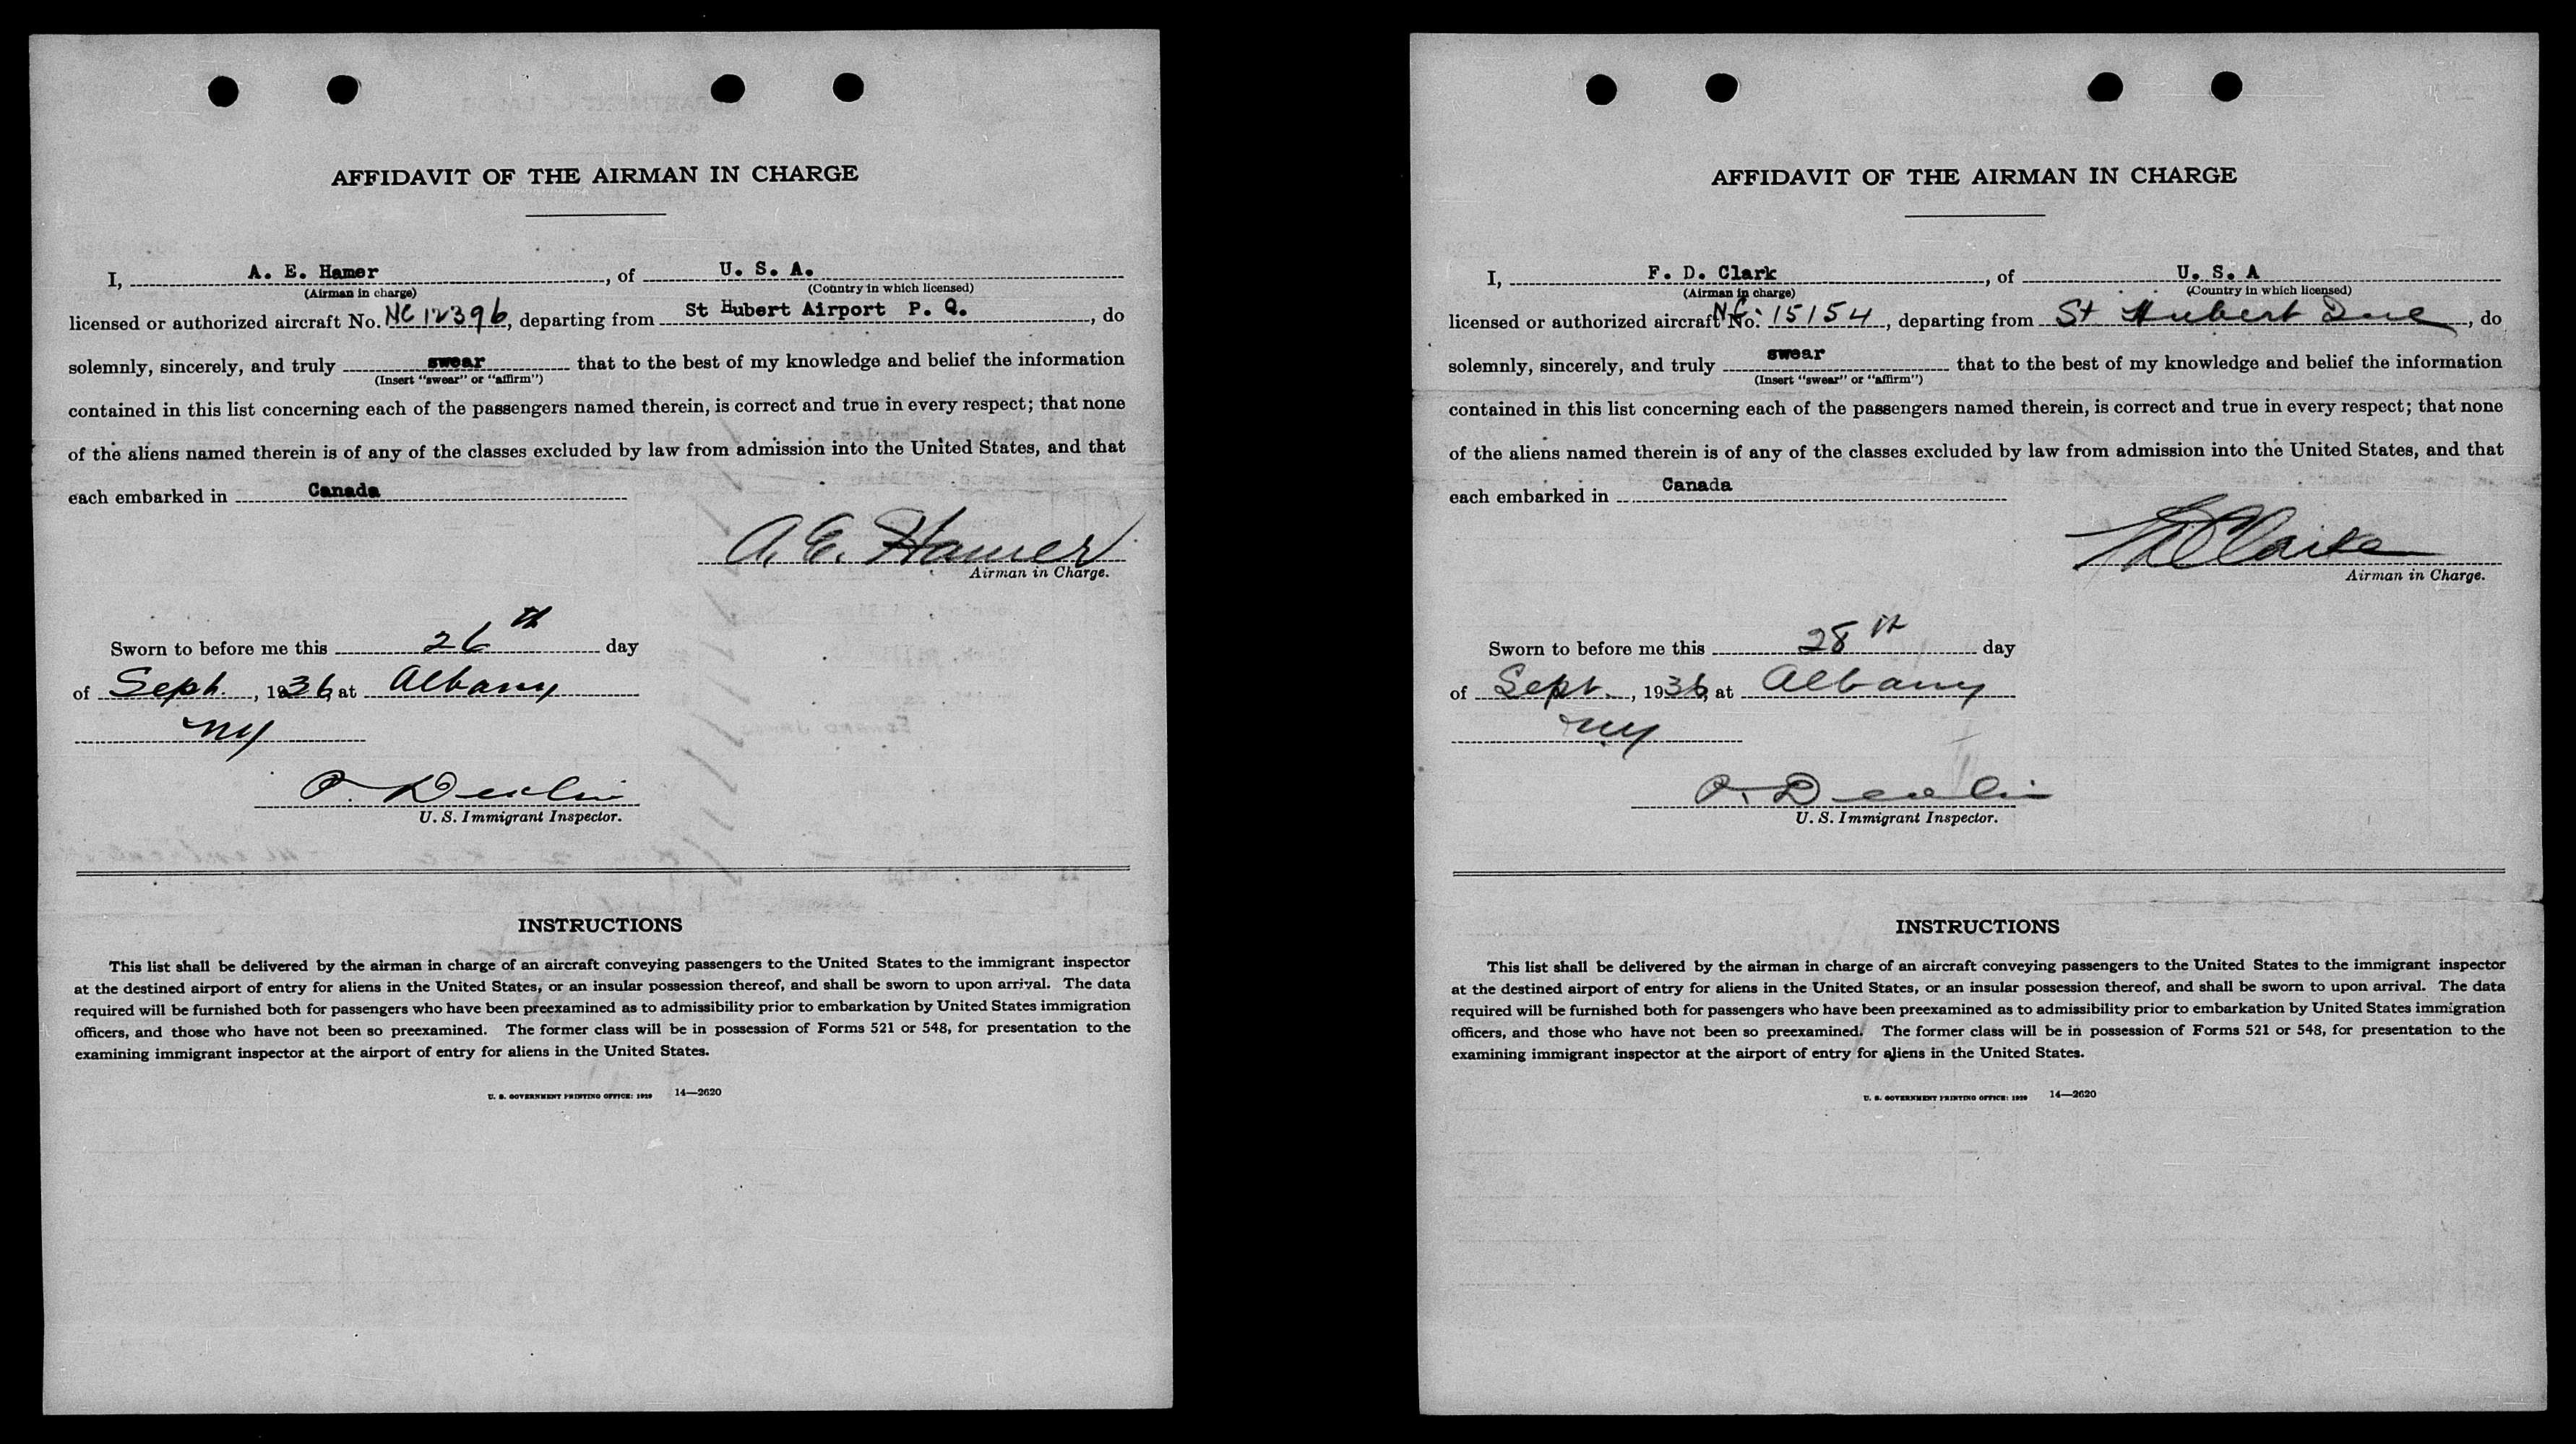 AFFIDAVIT OF THE AIRMAN IN CHARGE
I, A. E. Hamer, of U. S. A.
(Airman in charge) (Country in which licensed)
licensed or authorized aircraft No. NC 12396, departing from St Hubert Airport P. Q., do
solemnly, sincerely, and truly swear that to the best of my knowledge and belief the information
(Insert "swear" or "affirm")
contained in this list concerning each of the passengers named therein, is correct and true in every respect; that none
of the aliens named therein is of any of the classes excluded by law from admission into the United States, and that
each embarked in Canada
A. E. Hamer
Airman in Charge.
Sworn to before me this 26th day
of Sept., 1936, at Albany
NY
P. Devlin
U. S. Immigrant Inspector.
INSTRUCTIONS
This list shall be delivered by the airman in charge of an aircraft conveying passengers to the United States to the immigrant inspector
at the destined airport of entry for aliens in the United States, or an insular possession thereof, and shall be sworn to upon arrival. The data
required will be furnished both for passengers who have been preexamined as to admissibility prior to embarkation by United States immigration
officers, and those who have not been so preexamined. The former class will be in possession of Forms 521 or 548, for presentation to the
examining immigrant inspector at the airport of entry for aliens in the United States.
U. S. GOVERNMENT PRINTING OFFICE: 1929 14—2620
AFFIDAVIT OF THE AIRMAN IN CHARGE
I, F. D. Clark, of U. S. A
(Airman in charge) (Country in which licensed)
licensed or authorized aircraft No. NC. 15154, departing from St Hubert Que, do
solemnly, sincerely, and truly swear that to the best of my knowledge and belief the information
(Insert "swear" or "affirm")
contained in this list concerning each of the passengers named therein, is correct and true in every respect; that none
of the aliens named therein is of any of the classes excluded by law from admission into the United States, and that
each embarked in Canada
F D Clarke
Airman in Charge.
Sworn to before me this 28th day
of Sept., 1936, at Albany
NY
P. Devlin
U. S. Immigrant Inspector.
INSTRUCTIONS
This list shall be delivered by the airman in charge of an aircraft conveying passengers to the United States to the immigrant inspector
at the destined airport of entry for aliens in the United States, or an insular possession thereof, and shall be sworn to upon arrival. The data
required will be furnished both for passengers who have been preexamined as to admissibility prior to embarkation by United States immigration
officers, and those who have not been so preexamined. The former class will be in possession of Forms 521 or 548, for presentation to the
examining immigrant inspector at the airport of entry for aliens in the United States.
U. S. GOVERNMENT PRINTING OFFICE: 1929 14—2620